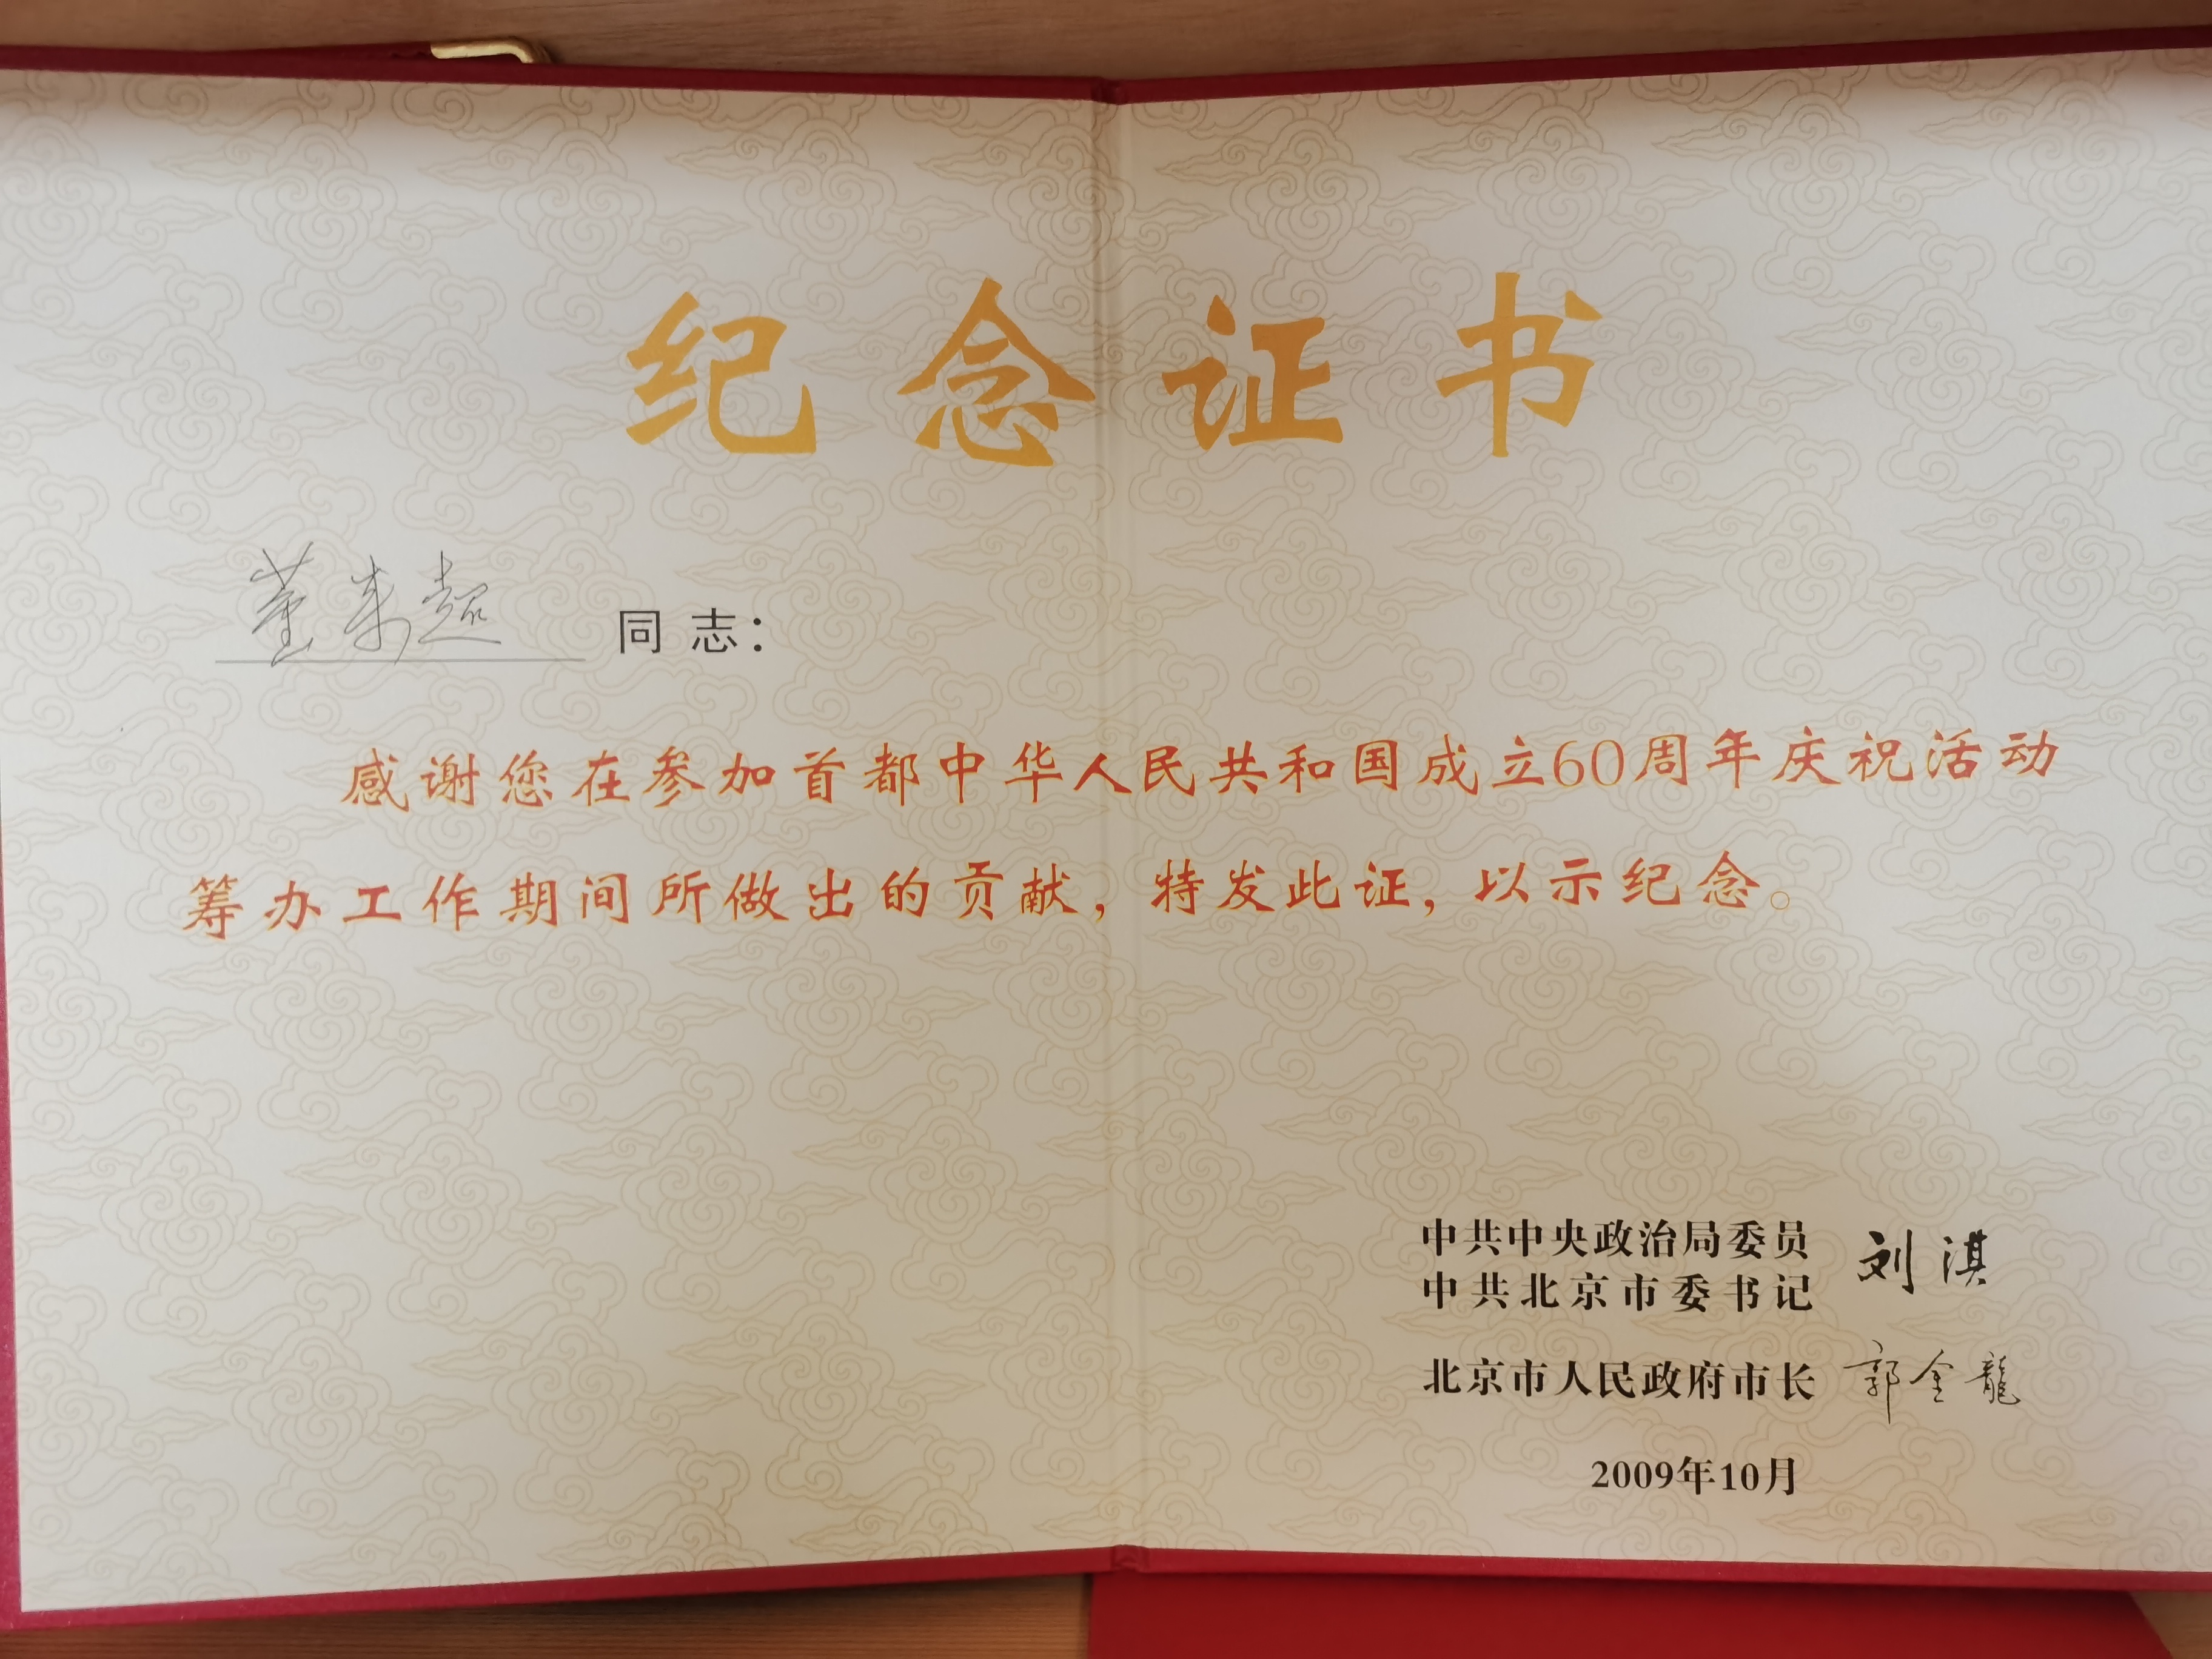 纪念证书
董来超 同志：
感谢您在参加首都中华人民共和国成立60周年庆祝活动
筹办工作期间所做出的贡献，特发此证，以示纪念。
中共中央政治局委员
中共北京市委书记 刘淇
北京市人民政府市长 郭金龍
2009年10月